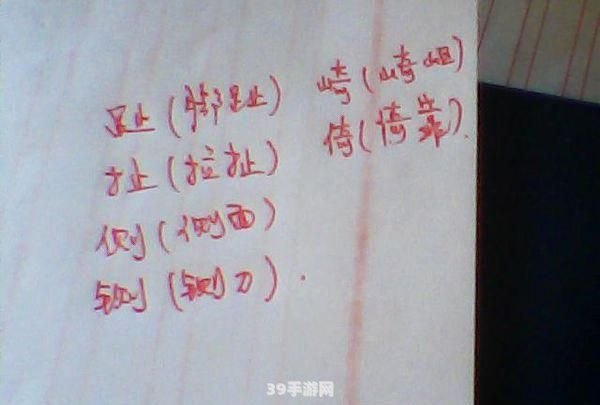 趾(脚趾)
扯(拉扯)
侧(侧面)
铡(铡刀).
崎(崎岖)
倚(倚靠).
39手游网